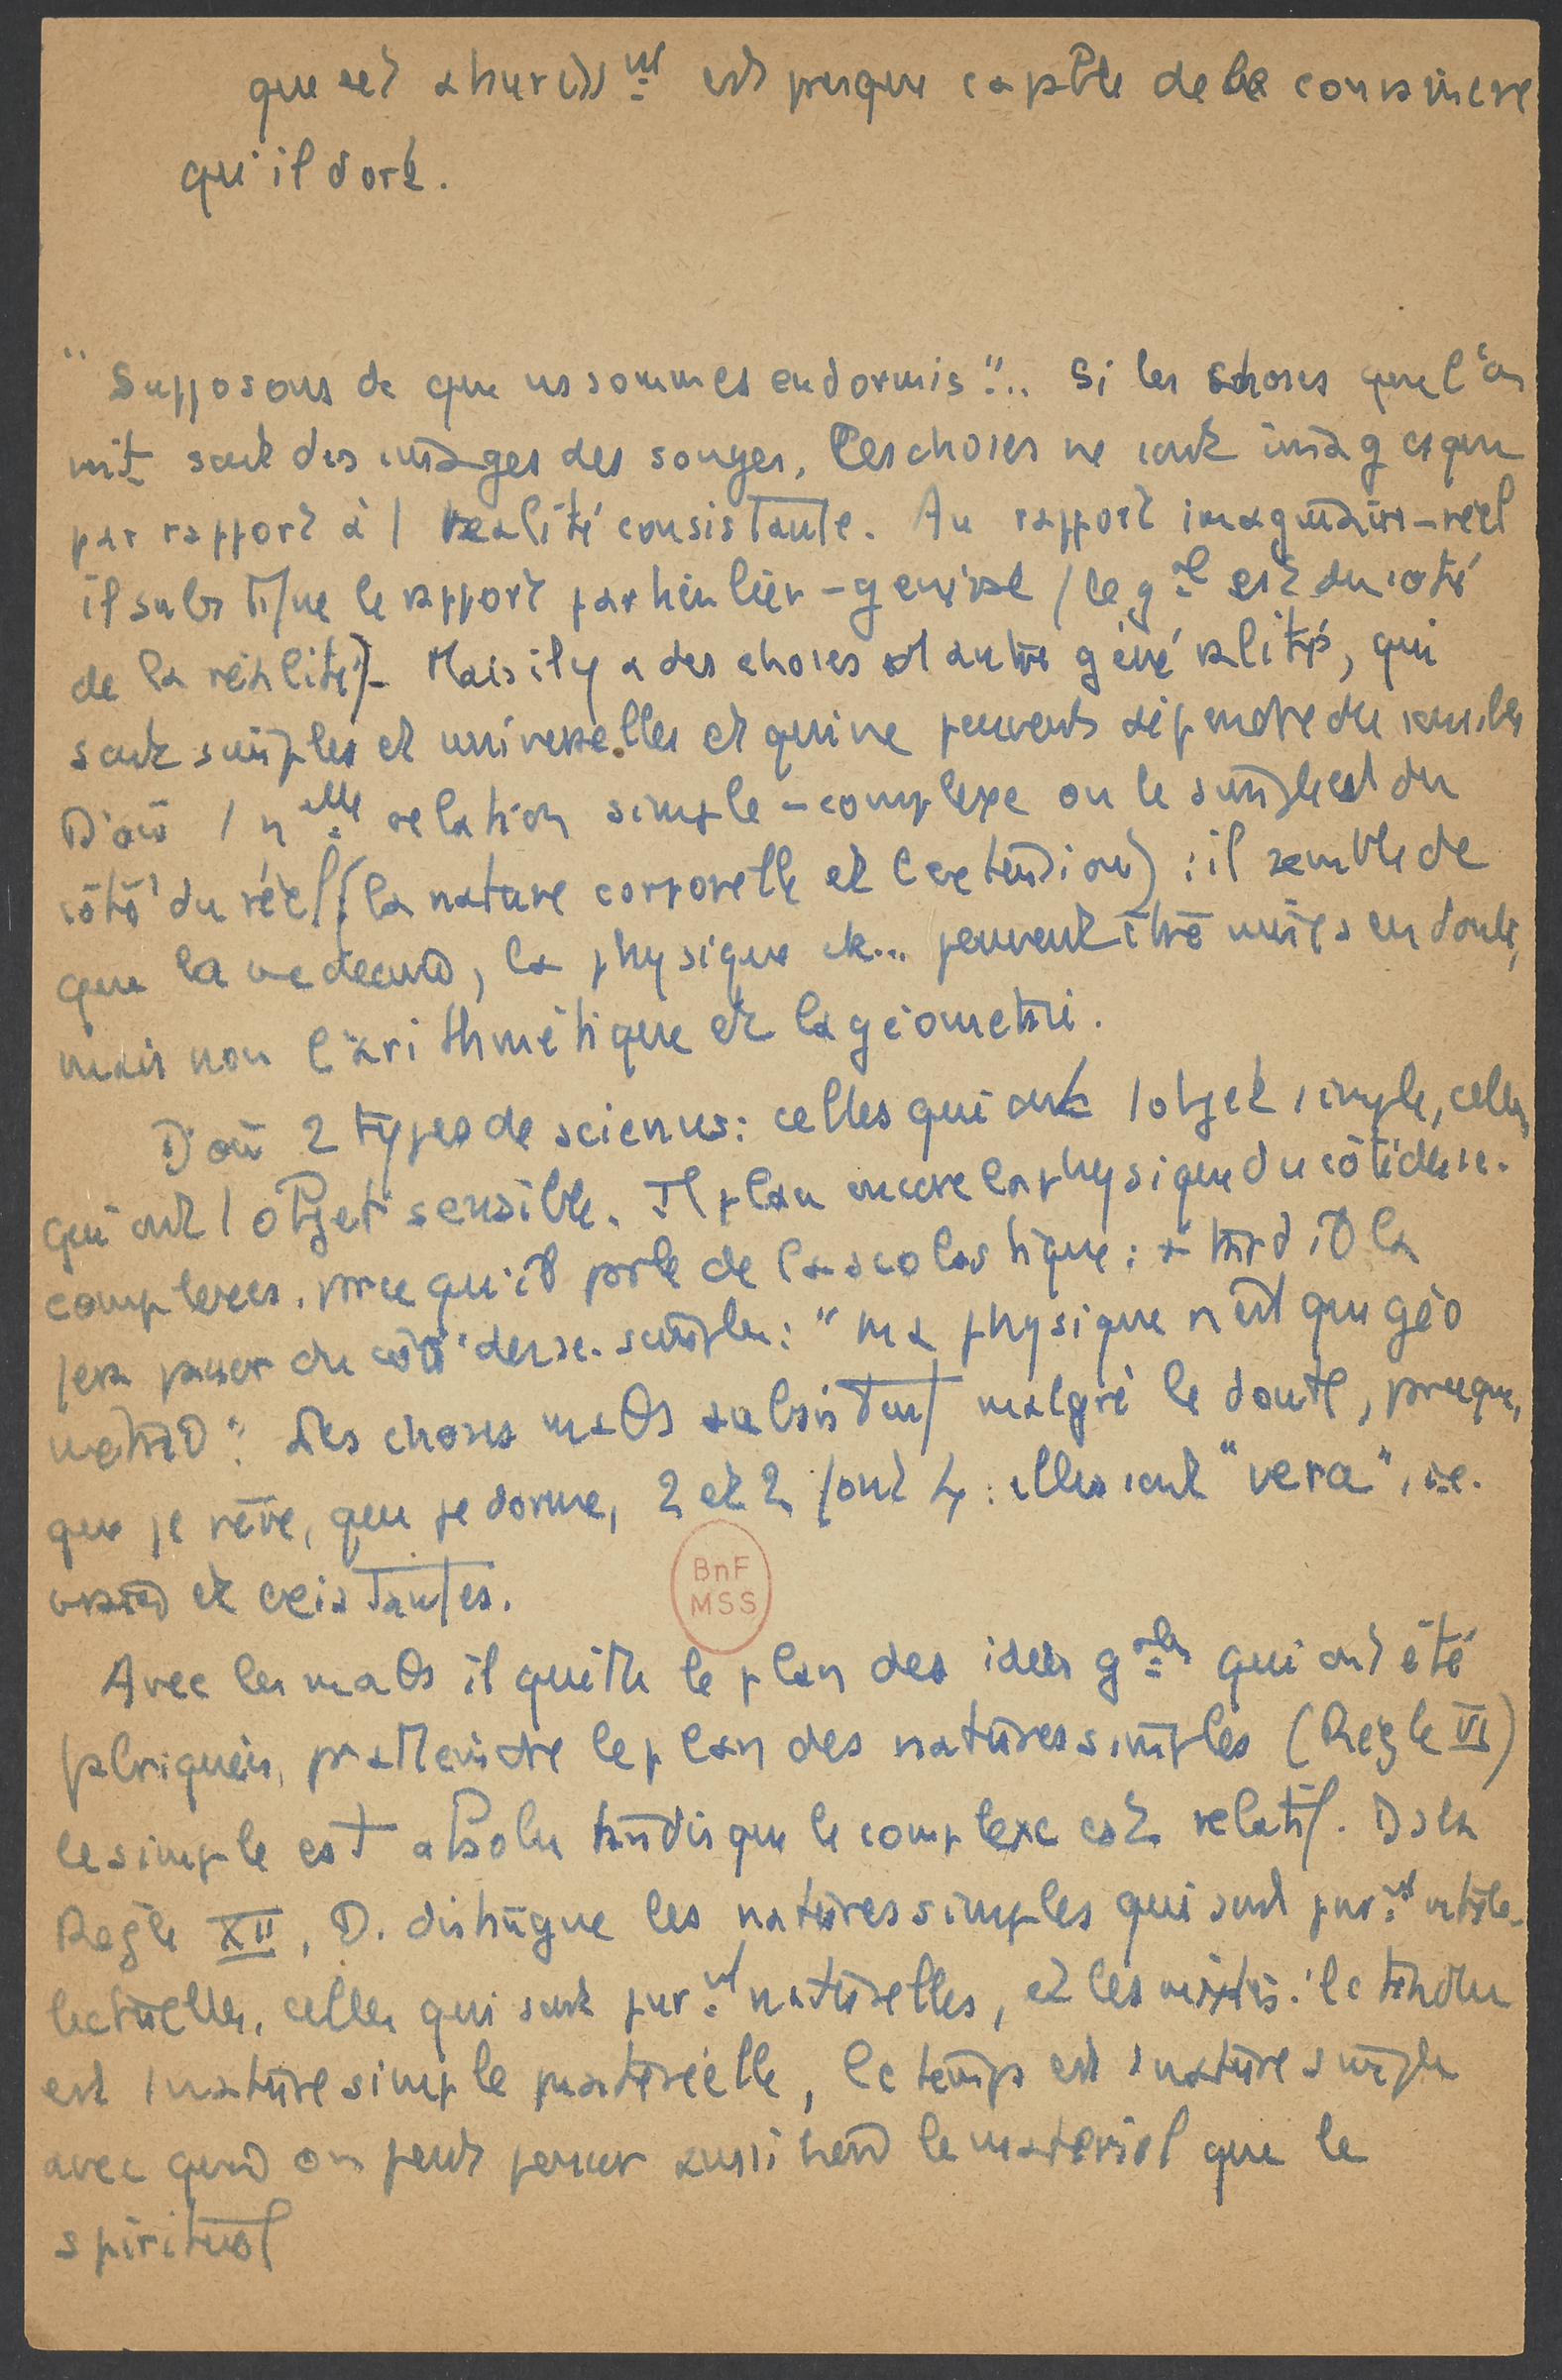 que cet ahuriss^nt est presque capble de le convaincre
qu'il dort.
"Supposons dc que ns sommes endormis"... Si les choses que l'on
voit sont des images des songes, les choses ne sont imag que
par rapport à 1 réalité consistante. Au rapport imaginaire-réel
il substitue le rapport particulier-général (le g^al est du côté
de la réalité). Mais il y a des choses d'autre généralité, qui
sont simples et universelles et qui ne peuvent dépendre du sensible
D'où 1 n^elle relation simple-complexe où le simple est du
côté du réel (la nature corporelle et l'extension) : il semble dc
que la médecine, la physique etc... peuvent être mises en doute,
mais non l'arithmétique et la géométrie.
D'où 2 types de sciences : celles qui ont 1 objet simple, celles
qui ont 1 objet sensible. Il place encore la physique du côté des sc.
complexes, prce qu'il prle de la scolastique : + tard il la
fera passer du côté des sc. simples : "ma physique n'est que géo
métrie". Les choses maths subsistent malgré le doute, prceque,
que je rêve, que je dorme, 2 et 2 font 4 : elles sont "vera", i.e.
vraies et existantes.
BnF
MSS
Avec les maths il quitte le plan des idées g^ales qui ont été
fabriquées, pr atteindre le plan des natures simples (Règle VI)
le simple est absolu tandis que le complexe est relatif. Ds la
Règle XII, D. distingue les natures simples qui sont pur^nt intel-
lectuelles, celles qui sont pur^nt naturelles, et les mixtes : l'étendue
est 1 nature simple matérielle, le temps est 1 nature simple
avec quoi on peut penser aussi bien le matériel que le
spirituel